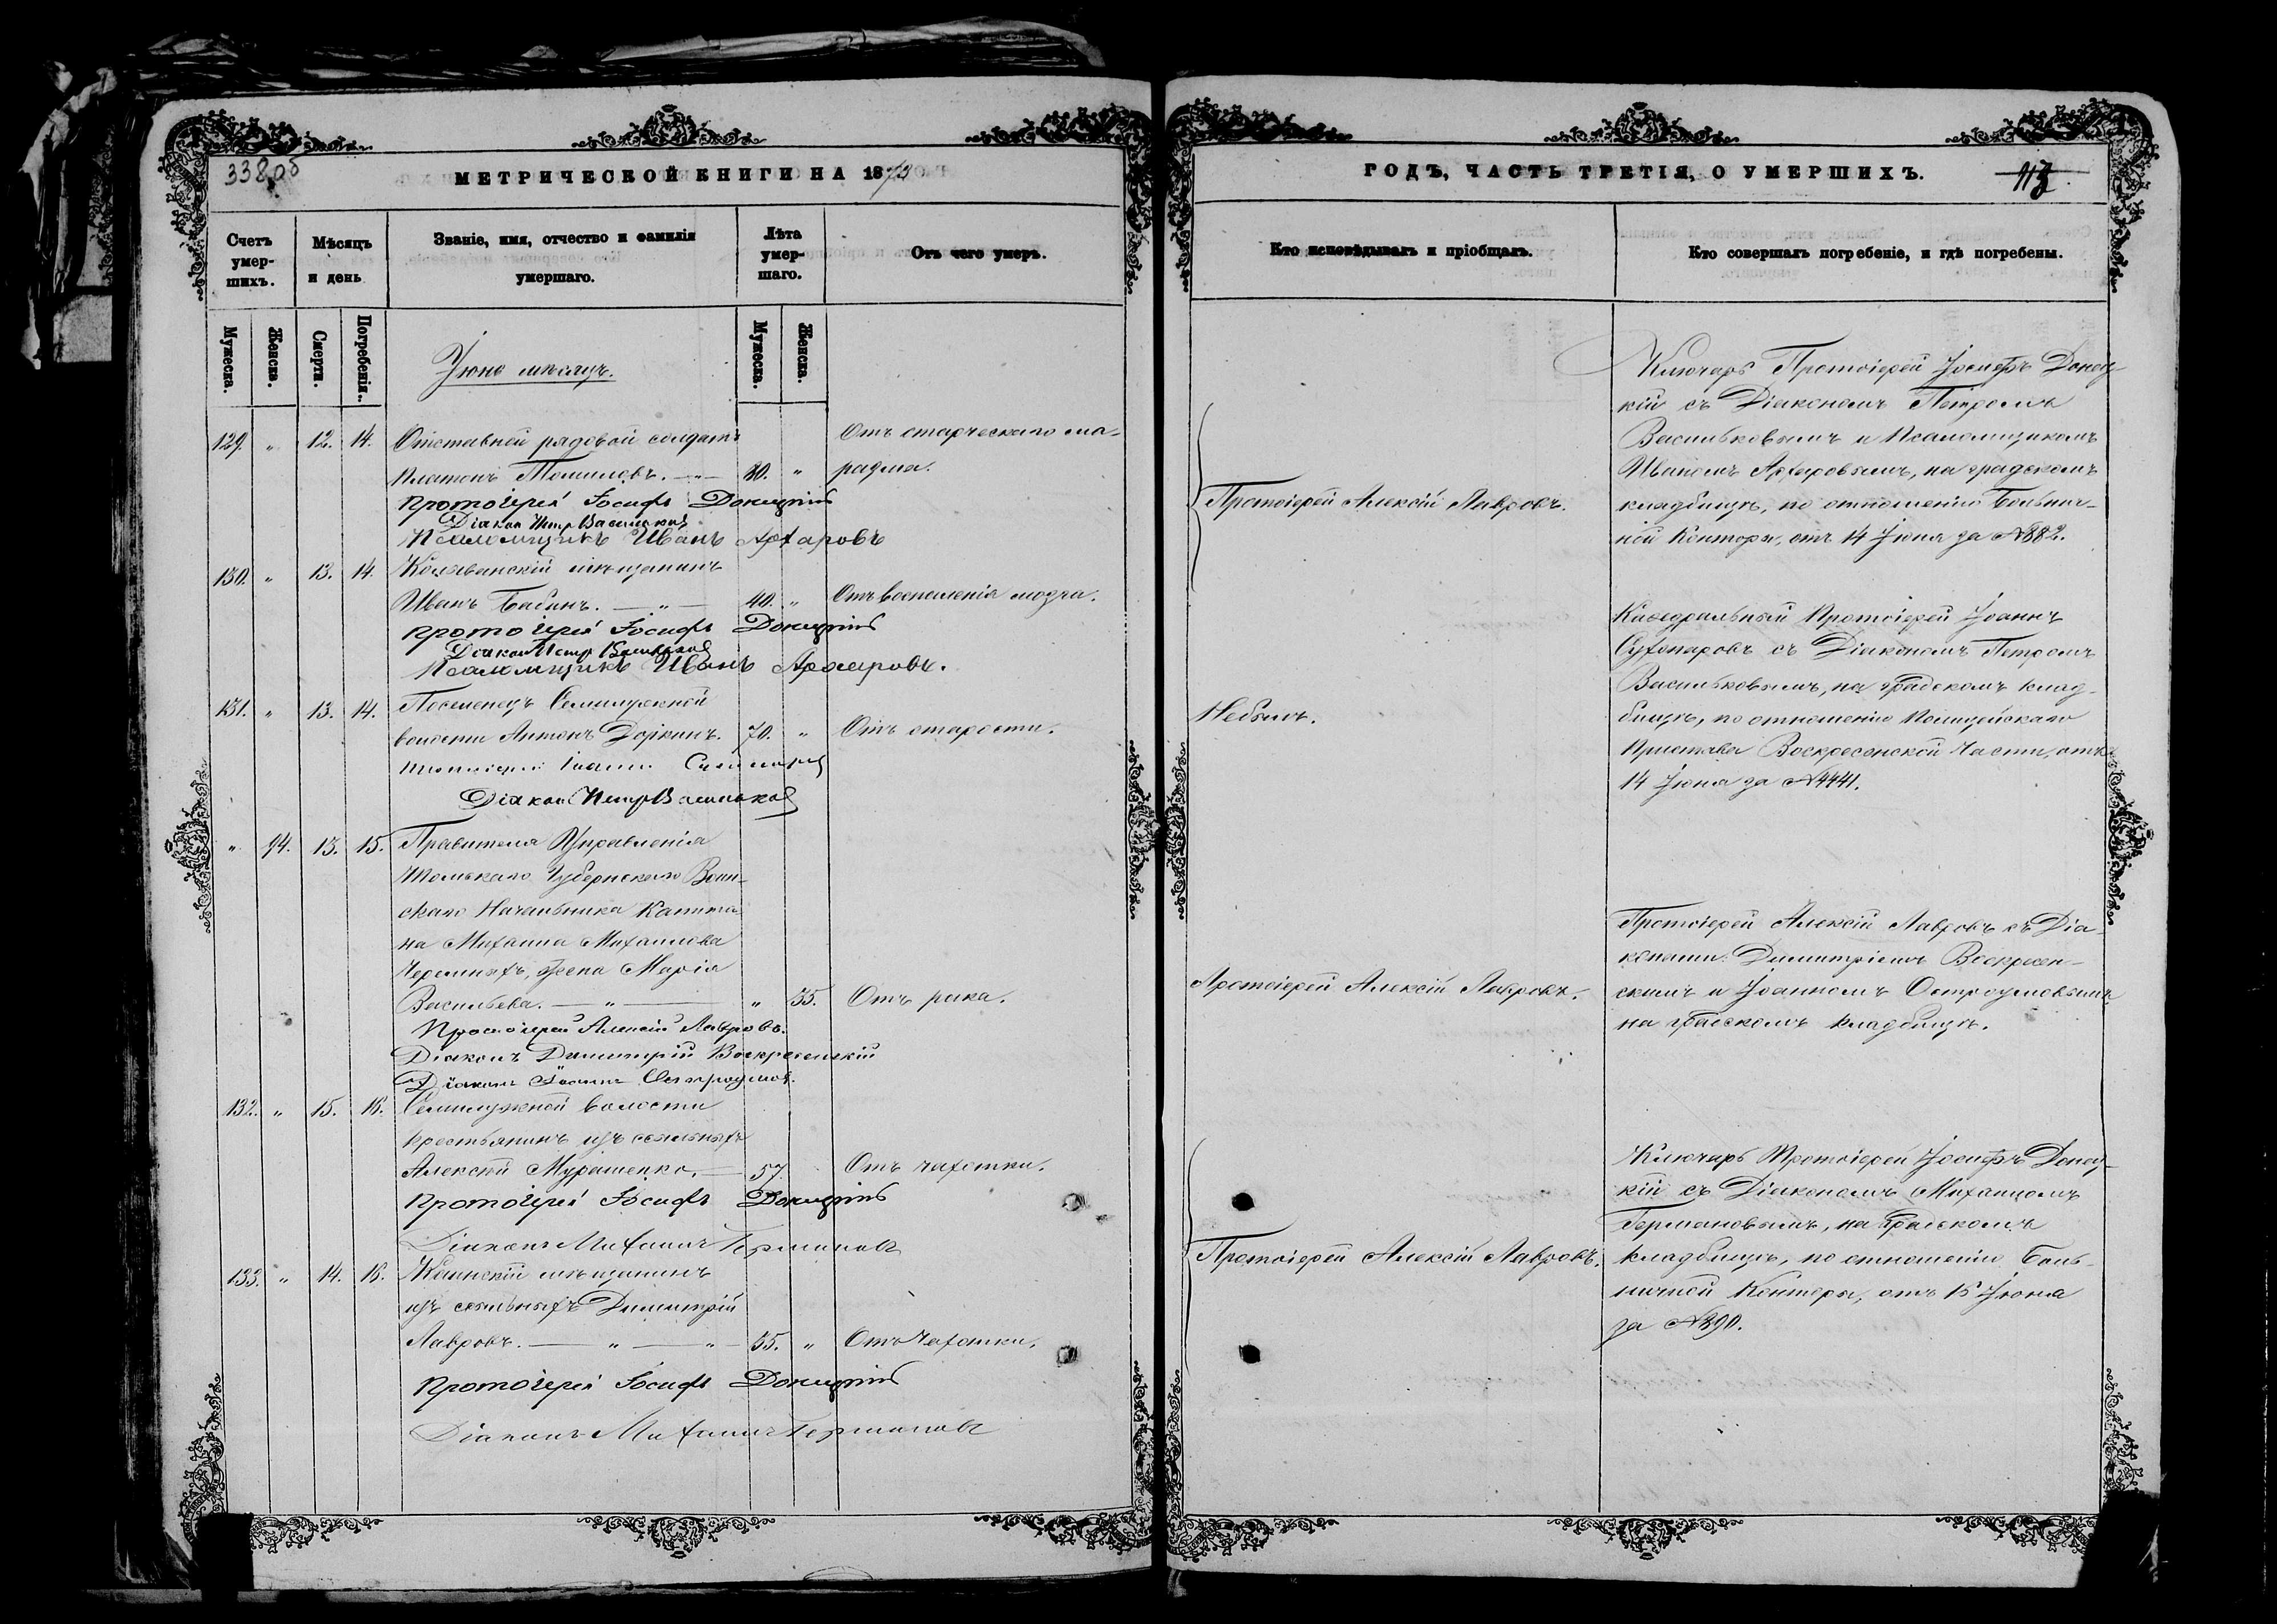 338 об
МЕТРИЧЕСКОЙ КНИГИ НА 1873
Счетъ умер-шихъ.
Мѣсяцъ и день
Званіе, имя, отчество и фамилія умершаго.
Лѣта умер-шаго.
Отъ чего умеръ.
Мужеска.
Женска.
Смерти.
Погребенія.
Мужеска.
Женска.
Іюнь мѣсяцъ.
129. " 12. 14. Отставной рядовой солдатъ
Отъ старческаго ма-
Платонъ Томиловъ. — " — 80. " разма.
Протоіерей Іосифъ Донецкій
Діаконъ Петръ Васильковъ
Псаломщикъ Иванъ Архаровъ
130. " 13. 14. Колыванскій мѣщанинъ
Иванъ Бабинъ. — " — 40. " Отъ воспаленія мозга.
Протоіерей Іосифъ Донецкій
Діаконъ Петръ Васильковъ
Псаломщикъ Иванъ Архаровъ.
131. " 13. 14. Поселенецъ Семилужной
волости Антонъ 70. " Отъ старости.
Протоіерей Іоаннъ Сухопаровъ
Діаконъ Петръ Васильковъ
" 94. 13. 15. Правителя Управленія
Томскаго Губернскаго Воин-
скаго Начальника Капита-
на Михаила Михаилова
Черемныхъ, жена Марія
Васильева. — " — " 35. Отъ рака.
Протоіерей Алексій Лавровъ.
Діаконъ Димитрій Воскресенскій
Діаконъ Іоаннъ Остроумовъ.
132. " 15. 16. Семилужной волости
крестьянинъ изъ ссыльныхъ
Алексѣй Мурашенко. — 57. Отъ чахотки.
Протоіерей Іосифъ Донецкій
Діаконъ Михаилъ Германовъ
133. " 14. 16. Каинскій мѣщанинъ
изъ ссыльныхъ Димитрій
Лавровъ. — " — " — 35. " Отъ чахотки.
Протоіерей Іосифъ Донецкій
Діаконъ Михаилъ Германовъ
ГОДЪ, ЧАСТЬ ТРЕТІЯ, О УМЕРШИХЪ.
Кто исповѣдывалъ и пріобщалъ.
Кто совершалъ погребеніе, и гдѣ погребены.
Ключарь Протоіерей Іосифъ Донец-
кій съ Діакономъ Петромъ
Васильковымъ и Псаломщикомъ
Иваномъ Архаровымъ, на градскомъ
Протоіерей Алексій Лавровъ.
кладбищѣ, по отношенію Больнич-
ной Конторы, отъ 14 Іюня за №882.
Каѳедральный Протоіерей Іоаннъ
Сухопаровъ съ Діакономъ Петромъ
Васильковымъ, на градскомъ клад-
Небылъ.
бищѣ, по отношенію Полицейскаго
Пристава Воскресенской Части, отъ
14 Іюня за №4441.
Протоіерей Алексій Лавровъ съ Діа-
конами: Димитріемъ Воскресен-
Протоіерей Алексій Лавровъ.
скимъ и Іоанномъ Остроумовымъ,
на градскомъ кладбищѣ.
Ключарь Протоіерей Іосифъ Донец-
кій съ Діакономъ Михаиломъ
Германовымъ, на градскомъ
Протоіерей Алексій Лавровъ.
кладбищѣ, по отношенію Боль-
ничной Конторы, отъ 15 Іюня
за №890.